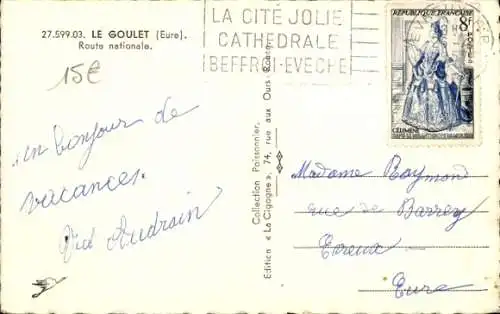 27.599.03. LE GOULET (Eure).
Route nationale.
15€
LA CITÉ JOLIE
CATHEDRALE
BEFFROI-EVECHE
REPUBLIQUE FRANÇAISE
8F
POSTES
CÉLIMÈNE
un bonjour de
vacances.
Audrain
Edition « La Cigogne », 74, rue aux Ours-Rouen
Collection Poissonnier.
Madame Raymond
rue de Barrey
Evreux
Eure